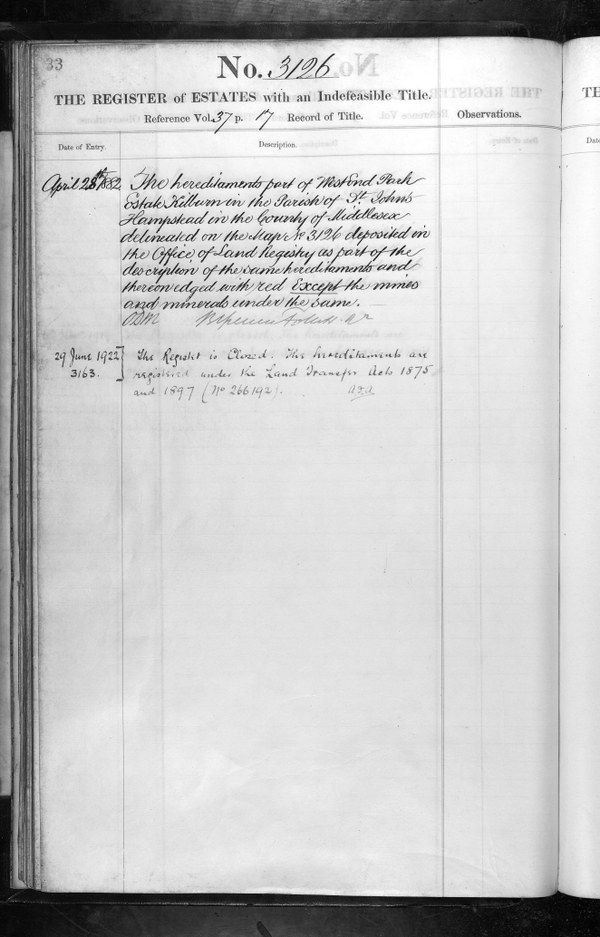 33
No. 3126
THE REGISTER of ESTATES with an Indefeasible Title.
Reference Vol. 37 p. 17 Record of Title.
Observations.
Date of Entry.
Description.
April 28th 1882
The hereditaments part of West End Park
Estate Kilburn in the Parish of St. Johns
Hampstead in the County of Middlesex
delineated on the Map No 3126 deposited in
the Office of Land Registry as part of the
description of the same hereditaments and
thereon edged with red Except the mines
and minerals under the same.
29 June 1922
3163.
The Register is Closed. The hereditaments are
registered under the Land Transfer Acts 1875
and 1897 (No 266192).
TH
Date